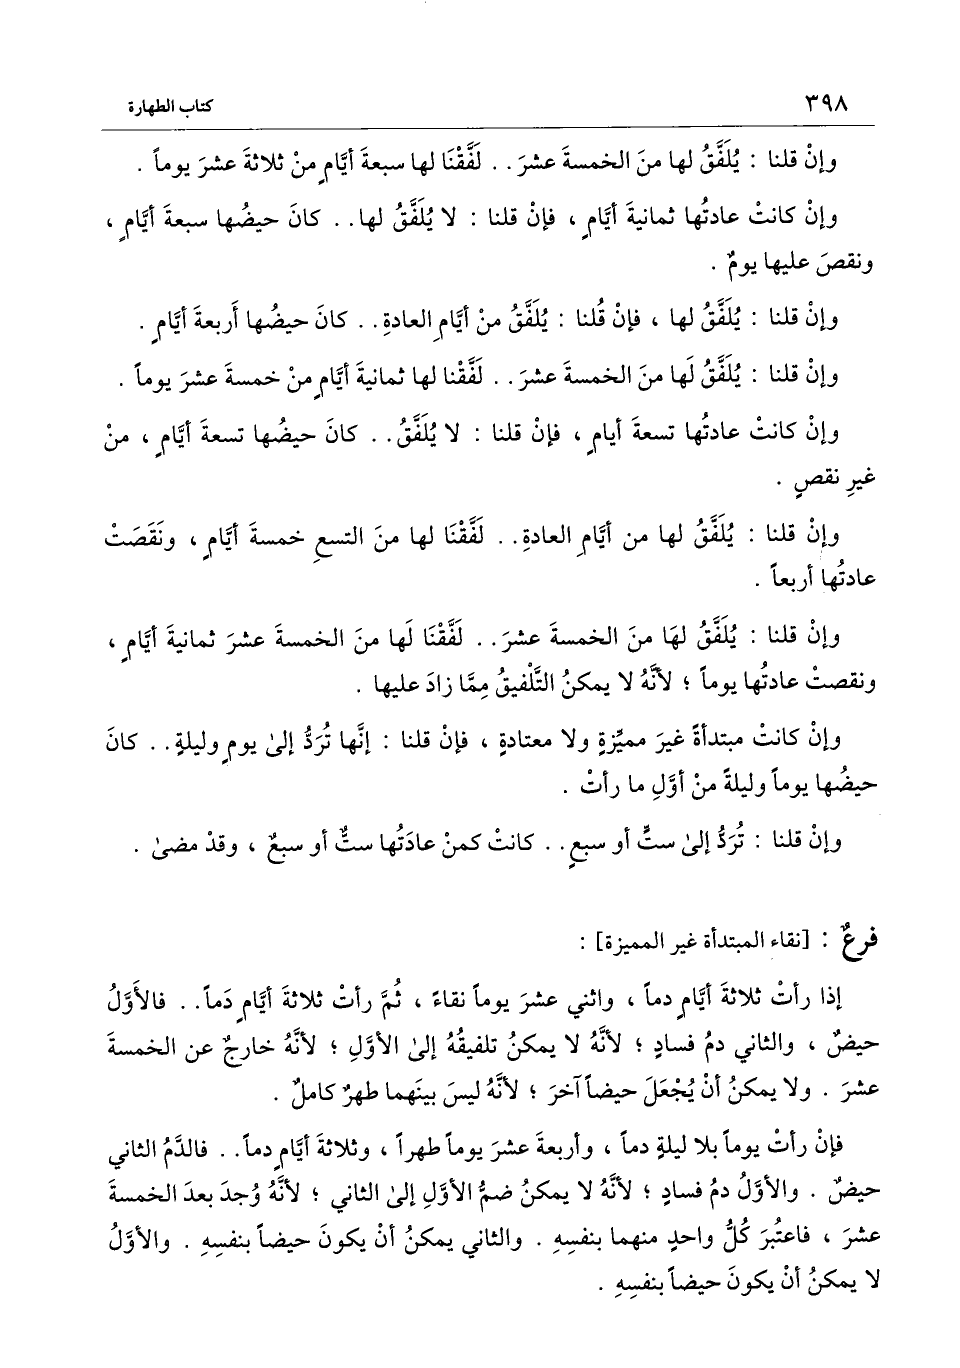 ٣٩٨ كتاب الطهارة
وإنْ قلنا : يُلَفَّقُ لها منَ الخمسةَ عشرَ . . لَفَّقْنَا لها سبعةَ أيَّامٍ منْ ثلاثةَ عشرَ يوماً .
وإنْ كانتْ عادتُها ثمانيةَ أيَّامٍ ، فإنْ قلنا : لا يُلَفَّقُ لها . . كانَ حيضُها سبعةَ أيَّامٍ ،
ونقصَ عليها يومٌ .
وإنْ قلنا : يُلَفَّقُ لها ، فإنْ قُلنا : يُلَفَّقُ منْ أيَّامِ العادةِ . . كانَ حيضُها أَربعةَ أيَّامٍ .
وإنْ قلنا : يُلَفَّقُ لَها منَ الخمسةَ عشرَ . . لَفَّقْنا لها ثمانيةَ أيَّامٍ منْ خمسةَ عشرَ يوماً .
وإنْ كانتْ عادتُها تسعةَ أيامٍ ، فإنْ قلنا : لا يُلَفَّقُ . . كانَ حيضُها تسعةَ أيَّامٍ ، منْ
غيرِ نقصٍ .
وإنْ قلنا : يُلَفَّقُ لها من أيَّامِ العادةِ . . لَفَّقْنَا لها منَ التسعِ خمسةَ أيَّامٍ ، ونَقَصَتْ
عادتُها أربعاً .
وإنْ قلنا : يُلَفَّقُ لهَا منَ الخمسةَ عشرَ . . لَفَّقْنَا لَها منَ الخمسةَ عشرَ ثمانيةَ أيَّامٍ ،
ونقصتْ عادتُها يوماً ؛ لأنَّهُ لا يمكنُ التَّلْفيقُ مِمَّا زادَ عليها .
وإنْ كانتْ مبتدأةً غيرَ مميِّزةٍ ولا معتادةٍ ، فإنْ قلنا : إنَّها تُرَدُّ إلىٰ يومٍ وليلةٍ . . كانَ
حيضُها يوماً وليلةً منْ أوَّلِ ما رأتْ .
وإنْ قلنا : تُرَدُّ إلىٰ ستٍّ أو سبعٍ . . كانتْ كمنْ عادَتُها ستٌّ أو سبعٌ ، وقدْ مضىٰ .
فرعٌ : [نقاء المبتدأة غير المميزة] :
إذا رأتْ ثلاثةَ أيَّامٍ دماً ، واثني عشرَ يوماً نقاءً ، ثُمَّ رأتْ ثلاثةَ أيَّامٍ دَماً . . فالأَوَّلُ
حيضٌ ، والثاني دمُ فسادٍ ؛ لأنَّهُ لا يمكنُ تلفيقُهُ إلىٰ الأوَّلِ ؛ لأنَّهُ خارجٌ عن الخمسةَ
عشرَ . ولا يمكنُ أنْ يُجْعَلَ حيضاً آخرَ ؛ لأنَّهُ ليسَ بينَهما طهرٌ كاملٌ .
فإنْ رأتْ يوماً بلا ليلةٍ دماً ، وأربعةَ عشرَ يوماً طهراً ، وثلاثةَ أيَّامٍ دماً . . فالدَّمُ الثاني
حيضٌ . والأوَّلُ دمُ فسادٍ ؛ لأنَّهُ لا يمكنُ ضمُّ الأوَّلِ إلىٰ الثاني ؛ لأنَّهُ وُجدَ بعدَ الخمسةَ
عشرَ ، فاعتُبرَ كُلُّ واحدٍ منهما بنفسِهِ . والثاني يمكنُ أنْ يكونَ حيضاً بنفسِهِ . والأوَّلُ
لا يمكنُ أنْ يكونَ حيضاً بنفسِهِ .